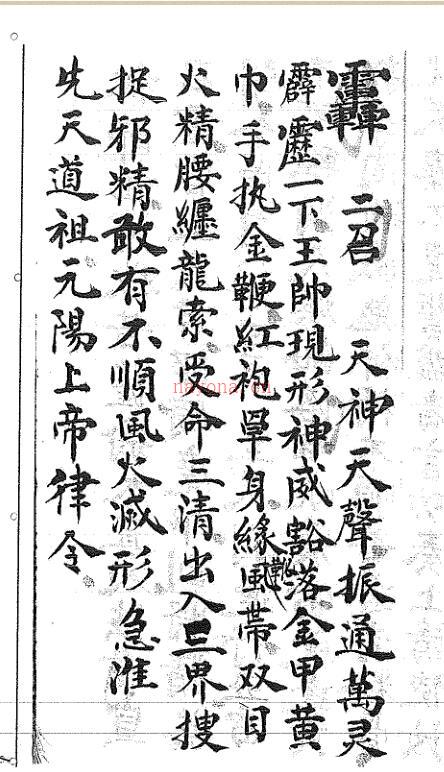 二召 天神天聲振通萬灵
霹靂一下王帥現形神威豁落金甲黃
巾手执金鞭紅袍罩身緣靴風帶双目
火精腰纏龍索受命三清出入三界搜
捉邪精敢有不順風火滅形急准
先天道祖元陽上帝律令